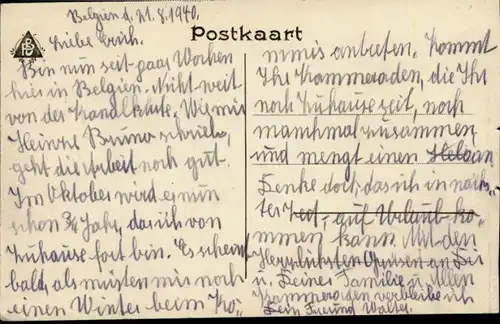 Belgien d. 21.8.1940.
Postkaart
Liebe Erich.
Bin nun seit paar Wochen
hier in Belgien. Nicht weit
von der Kanalküste. Wie mir
Heinrich Bruno schrieb,
geht die Arbeit noch gut.
Im Oktober wird es nun
schon 3/4 Jahr, das ich von
Zuhause fort bin. Es scheint
bald, als müsten wir noch
einen Winter beim Ko-
mmis antreten. Kommt
Ihr Kammeraden, die Ihr
noch Zuhause seit, noch
manchmal zusammen
und mengt einen
Denke doch, das ich in näch-
ster Zeit, auf Urlaub ko-
mmen kann. Mit den
Herzlichsten Grüssen an Dir
u. Deiner Familie u. Allen
Kammeraden verbleibe ich
Dein Freund Walter.